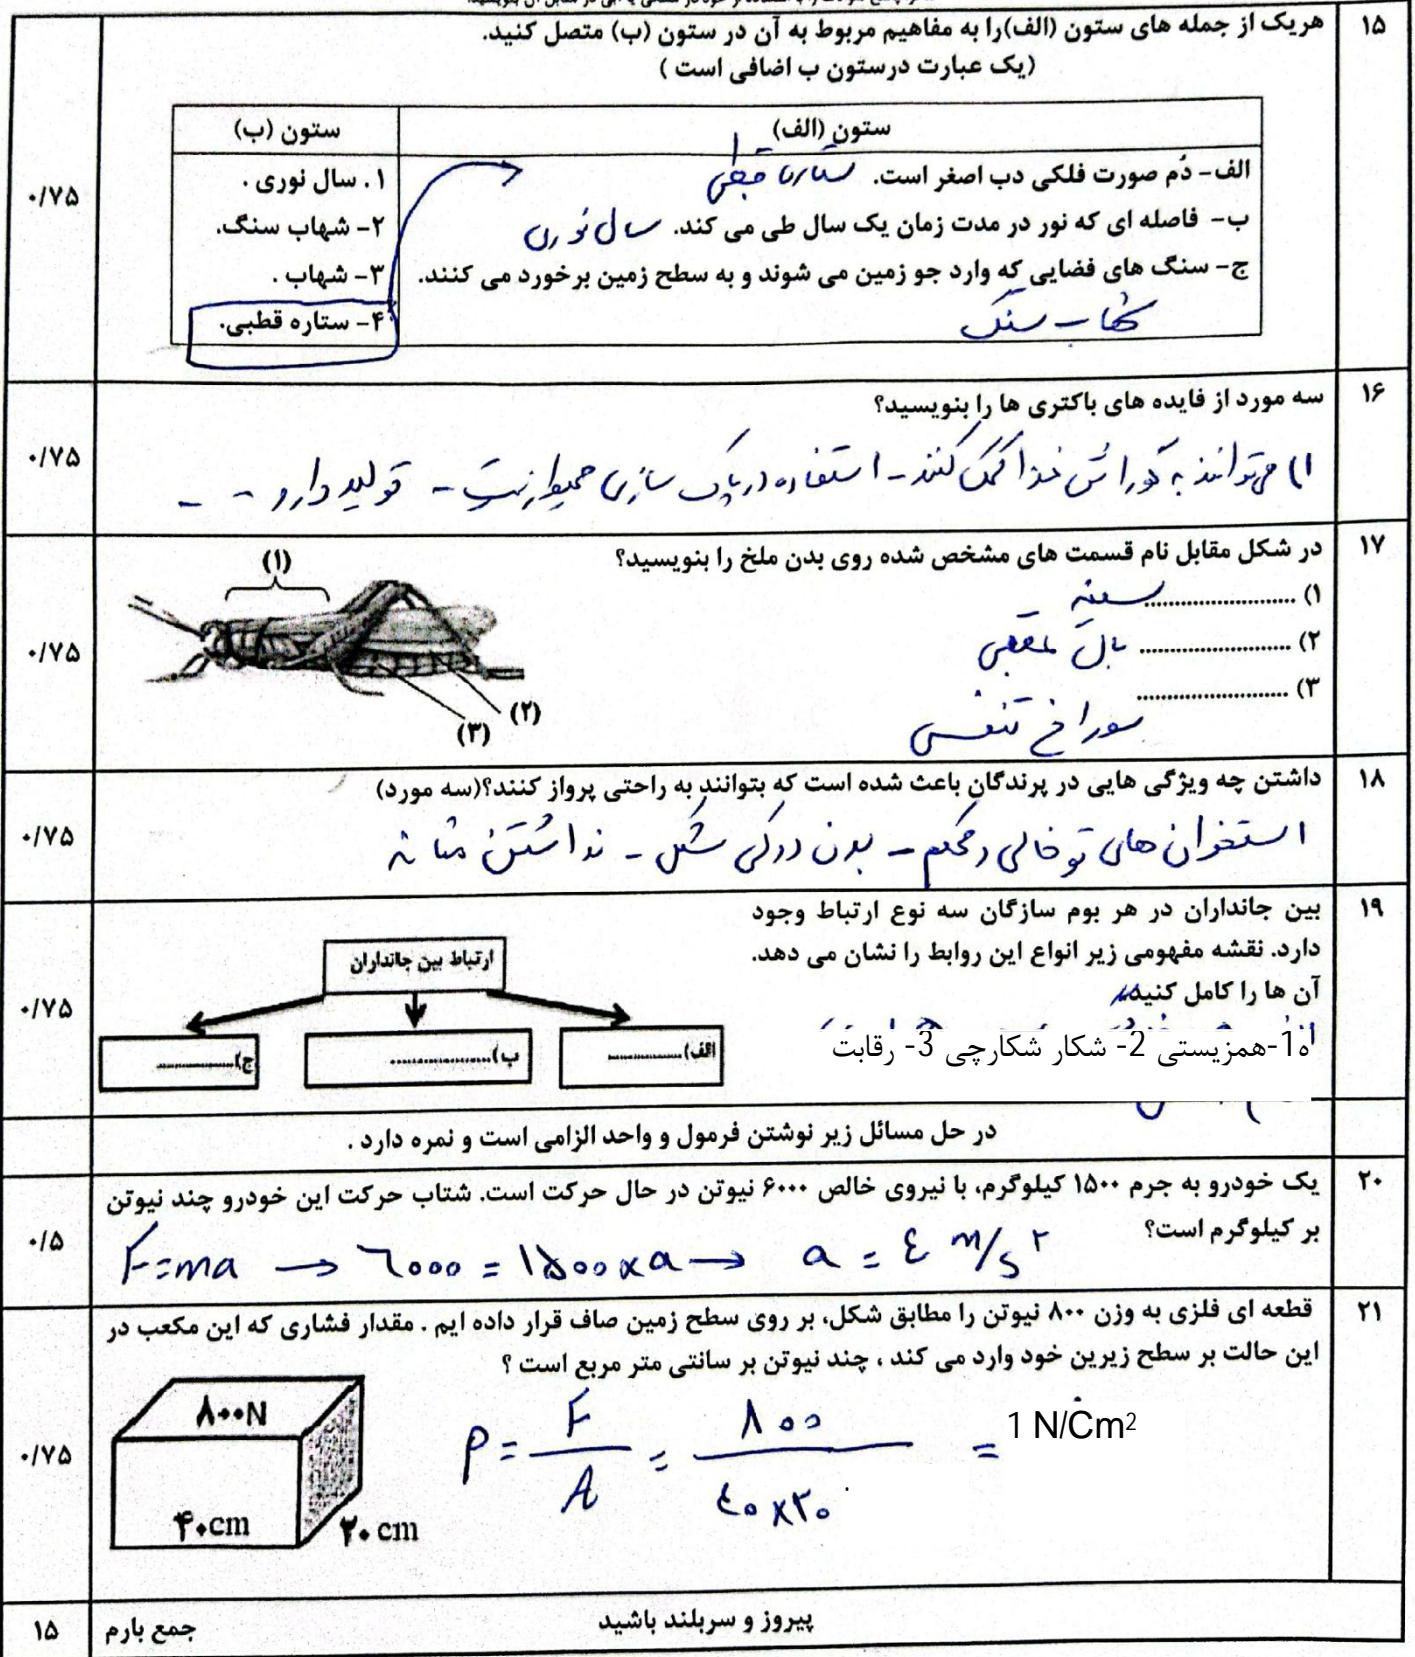 ۱۵
هریک از جمله های ستون (الف)را به مفاهیم مربوط به آن در ستون (ب) متصل کنید.
(یک عبارت درستون ب اضافی است )
ستون (الف)
ستون (ب)
الف- دُم صورت فلکی دب اصغر است. ستاره قطبی
ب- فاصله ای که نور در مدت زمان یک سال طی می کند. سال نوری
ج- سنگ های فضایی که وارد جو زمین می شوند و به سطح زمین برخورد می کنند.
شهاب سنگ
۱. سال نوری .
۲- شهاب سنگ.
۳- شهاب .
۴- ستاره قطبی.
۰/۷۵
۱۶
سه مورد از فایده های باکتری ها را بنویسید؟
۱) می توانند به گوارش غذا کمک کنند - استفاده در پاک سازی محیط زیست - تولید دارو - -
۰/۷۵
۱۷
در شکل مقابل نام قسمت های مشخص شده روی بدن ملخ را بنویسید؟
۱) ........................ سینه
۲) ........................ بال عقبی
۳) ........................
سوراخ تنفسی
(۱)
(۲)
(۳)
۰/۷۵
۱۸
داشتن چه ویژگی هایی در پرندگان باعث شده است که بتوانند به راحتی پرواز کنند؟(سه مورد)
استخوان های تو خالی و محکم - بدن دوکی شکل - نداشتن مثانه
۰/۷۵
۱۹
بین جانداران در هر بوم سازگان سه نوع ارتباط وجود
دارد. نقشه مفهومی زیر انواع این روابط را نشان می دهد.
آن ها را کامل کنید
ه1-همزیستی 2- شکار شکارچی 3- رقابت
ارتباط بین جانداران
الف)................
ب)......................
ج)................
۰/۷۵
در حل مسائل زیر نوشتن فرمول و واحد الزامی است و نمره دارد .
۲۰
یک خودرو به جرم ۱۵۰۰ کیلوگرم، با نیروی خالص ۶۰۰۰ نیوتن در حال حرکت است. شتاب حرکت این خودرو چند نیوتن
بر کیلوگرم است؟
F=ma → ٦٠٠٠ = ١٥٠٠×a → a = ٤ m/s²
۰/۵
۲۱
قطعه ای فلزی به وزن ۸۰۰ نیوتن را مطابق شکل، بر روی سطح زمین صاف قرار داده ایم . مقدار فشاری که این مکعب در
این حالت بر سطح زیرین خود وارد می کند ، چند نیوتن بر سانتی متر مربع است ؟
P = F/A = ٨٠٠/٤٠×٢٠ = 1 N/Cm²
۸۰۰N
۴۰cm
۲۰ cm
۰/۷۵
پیروز و سربلند باشید
جمع بارم
۱۵